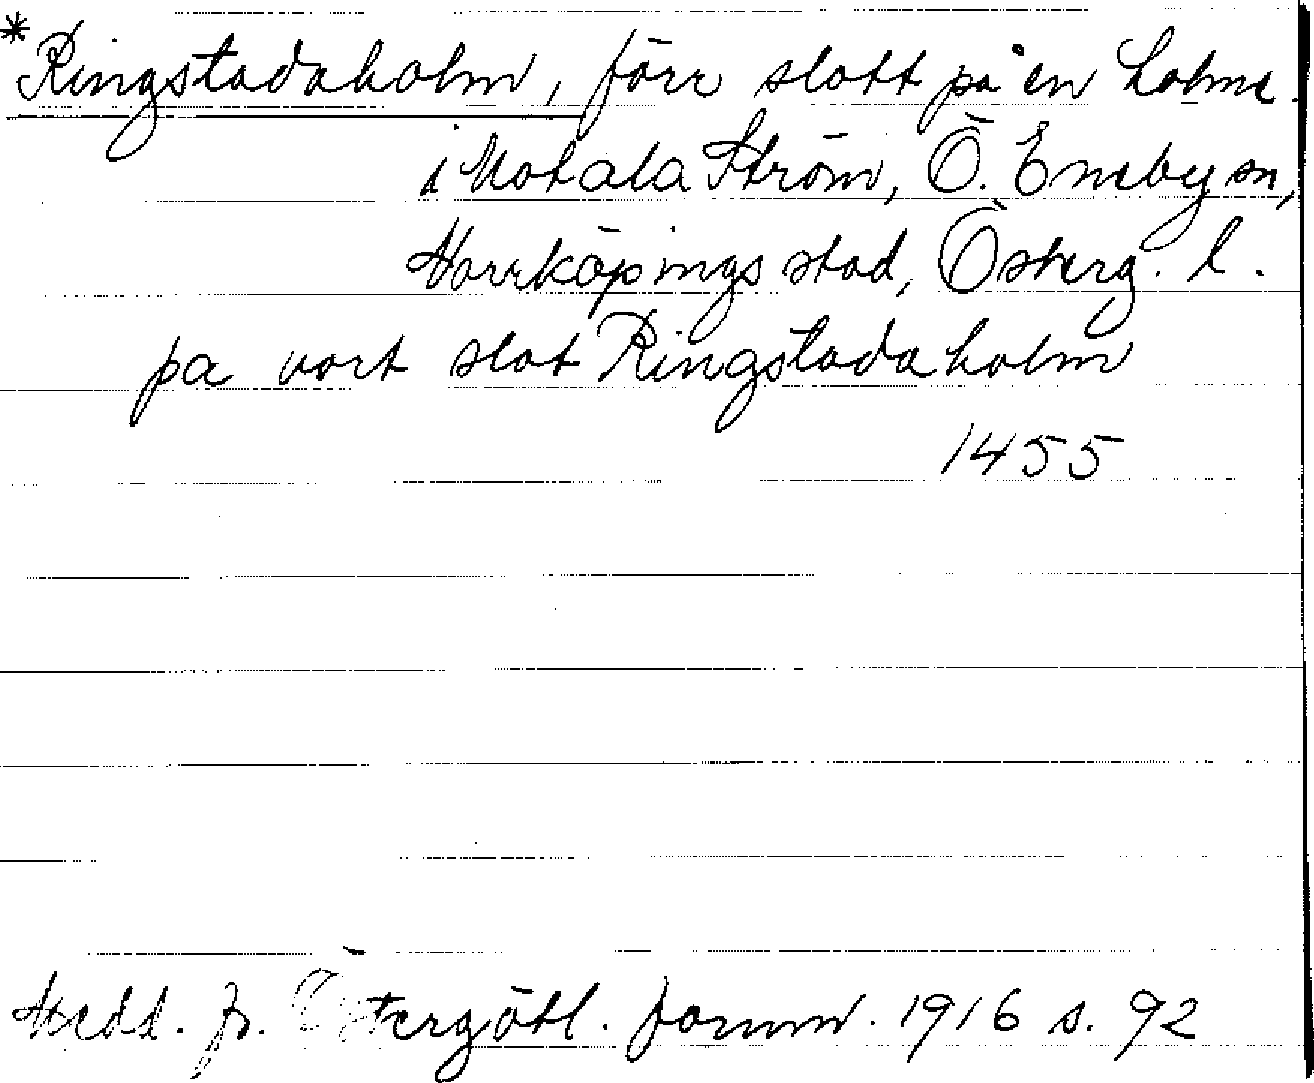 *Ringstadaholm, förr slott på en holme
i Motala Ström, Ö. Eneby sn,
Norrköpings stad, Österg. l.
pa vort slot Ringstadaholm
1455
Medd. fr. Östergötl. fornm. 1916 s. 92